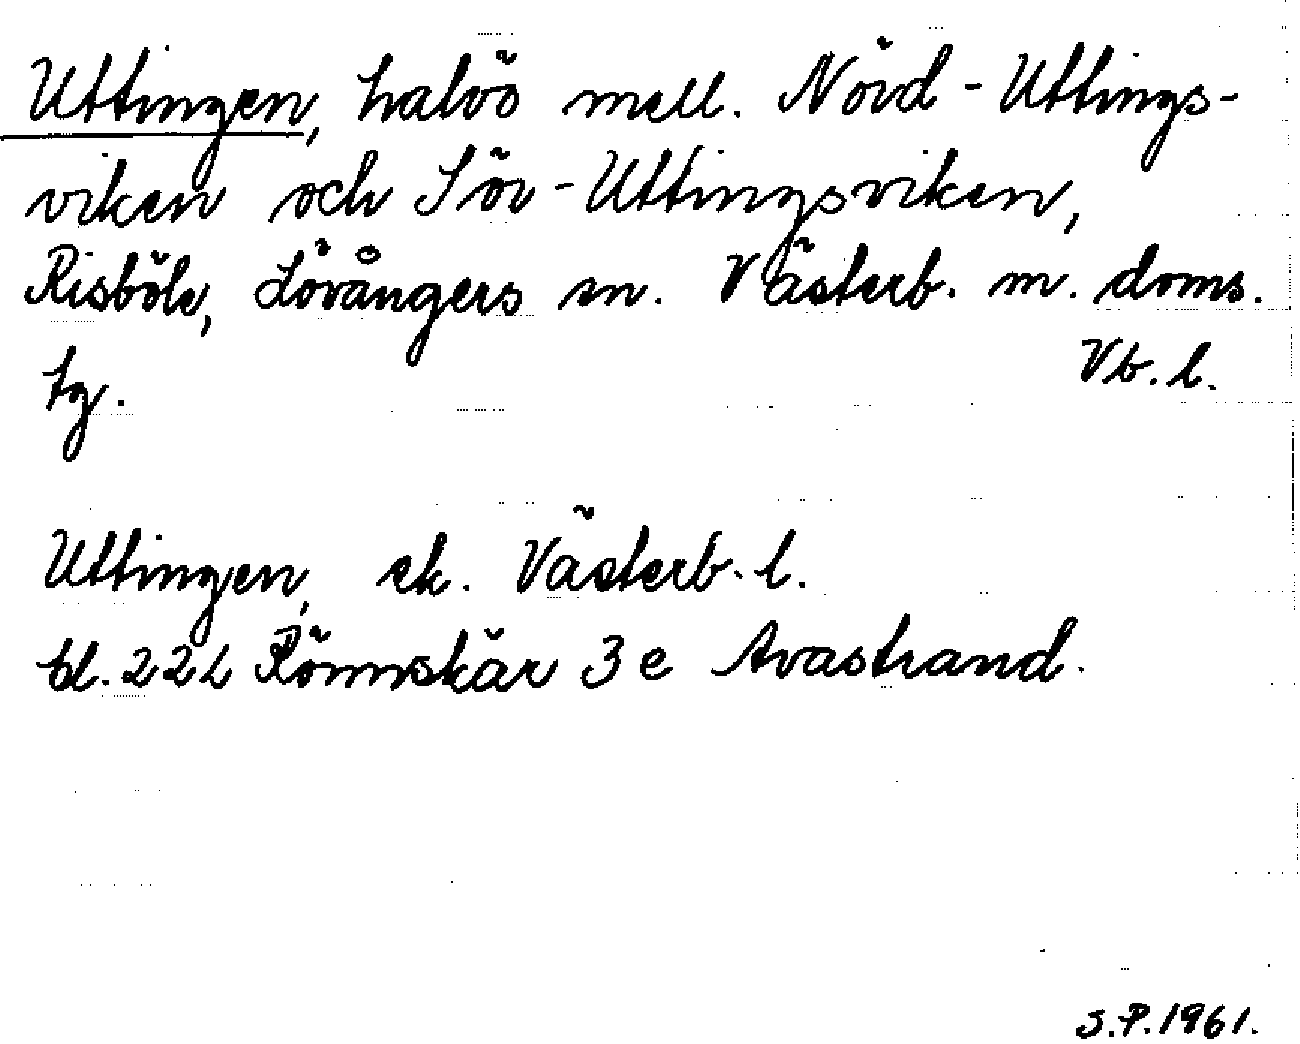 Uttingen, halvö mell. Nörd-Uttings-
viken och Sör-Uttingsviken,
Risböle, Lövångers sn. Västerb. m. doms.
tg. Vb. l.
Uttingen, ek. Västerb. l.
bl. 22L Rönnskär 3e Avastrand.
S.P. 1961.